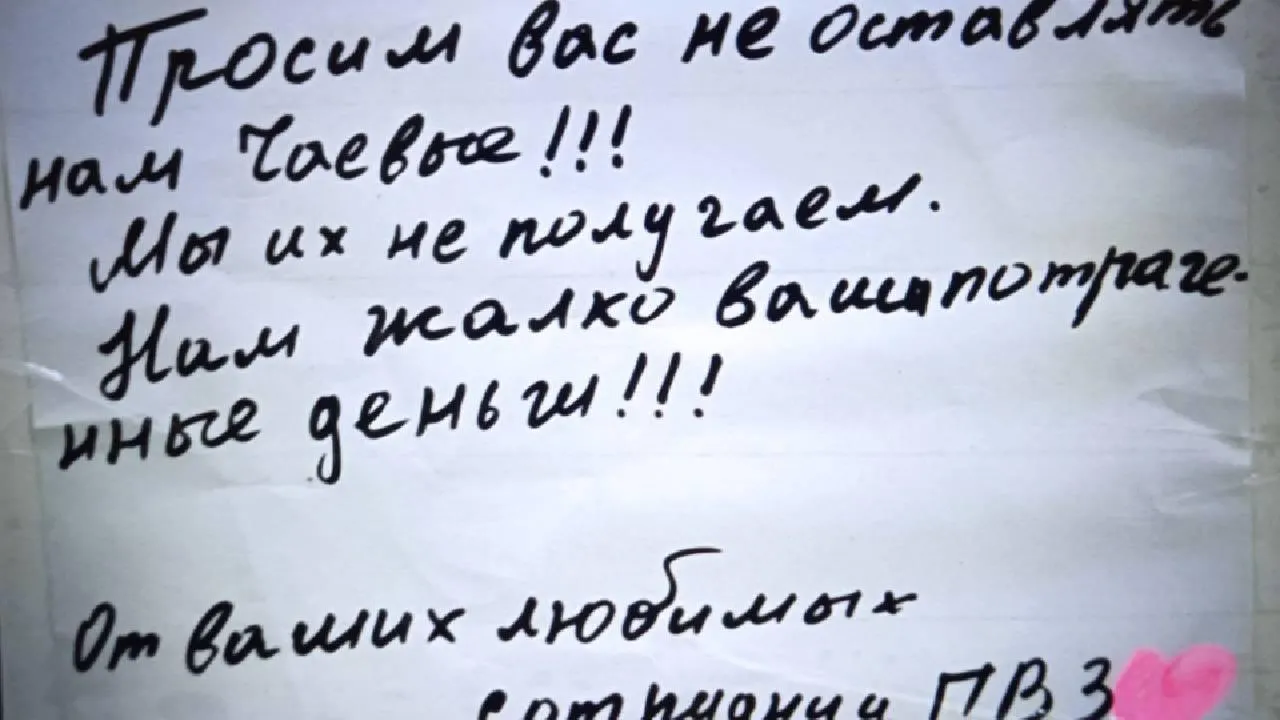 Просим вас не оставлять
нам Чаевые!!!
Мы их не получаем.
Нам жалко ваши потраче-
нные деньги!!!
От ваших любимых
ПВЗ